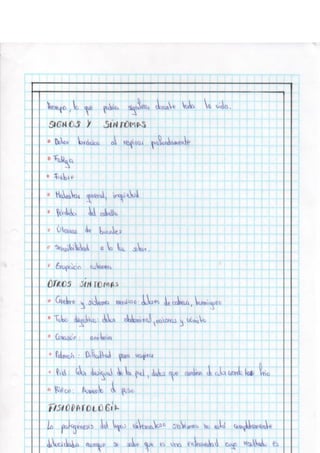 tiempo, lo que podría significar durante toda la vida.
SIGNOS Y SINTOMAS
Dolor torácico al respirar profundamente
Fatiga
Fiebre
Malestar general, inquietud
Pérdida del cabello
Úlceras bucales
Sensibilidad a la luz solar.
Erupción cutánea
OTROS SINTOMAS
Cerebro y sistema nervioso: dolores de cabeza, hormigueo
Tubo digestivo: dolor abdominal, náuseas y vómito
Corazón: arritmia
Pulmón: Dificultad para respirar
Piel: Color desigual de la piel, dedos que cambian de color cuando hace frío
Riñon: Aumento d peso
FISIOPATOLOGIA
La patogénesis del lupus eritematoso sistémico no está completamente
dilucidada aunque se sabe que es una enfermedad cuyo resultado es